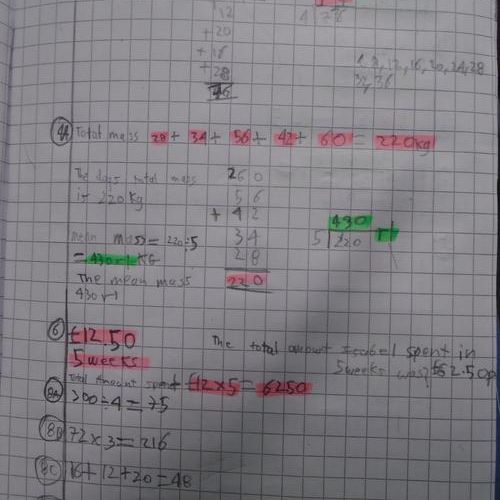 12
+ 20
+ 18
+ 28
4, 8, 12, 16, 20, 24, 28
32, 36
4A Total mass 28 + 34 + 56 + 42 + 60 = 220kg
The dogs total mass
is 220 kg
260
56
+ 42
34
28
220
mean mass = 220÷5
= 430 r1 KG
The mean mass
430 r1
430 r1
5 220
6 £12.50
5 weeks
The total amount Isabel spent in
5 weeks was £62.50p
Total Amount spent £12 x 5 = 6250
8A 300 ÷ 4 = 75
8B 72 x 3 = 216
8C 16 + 12 + 20 = 48